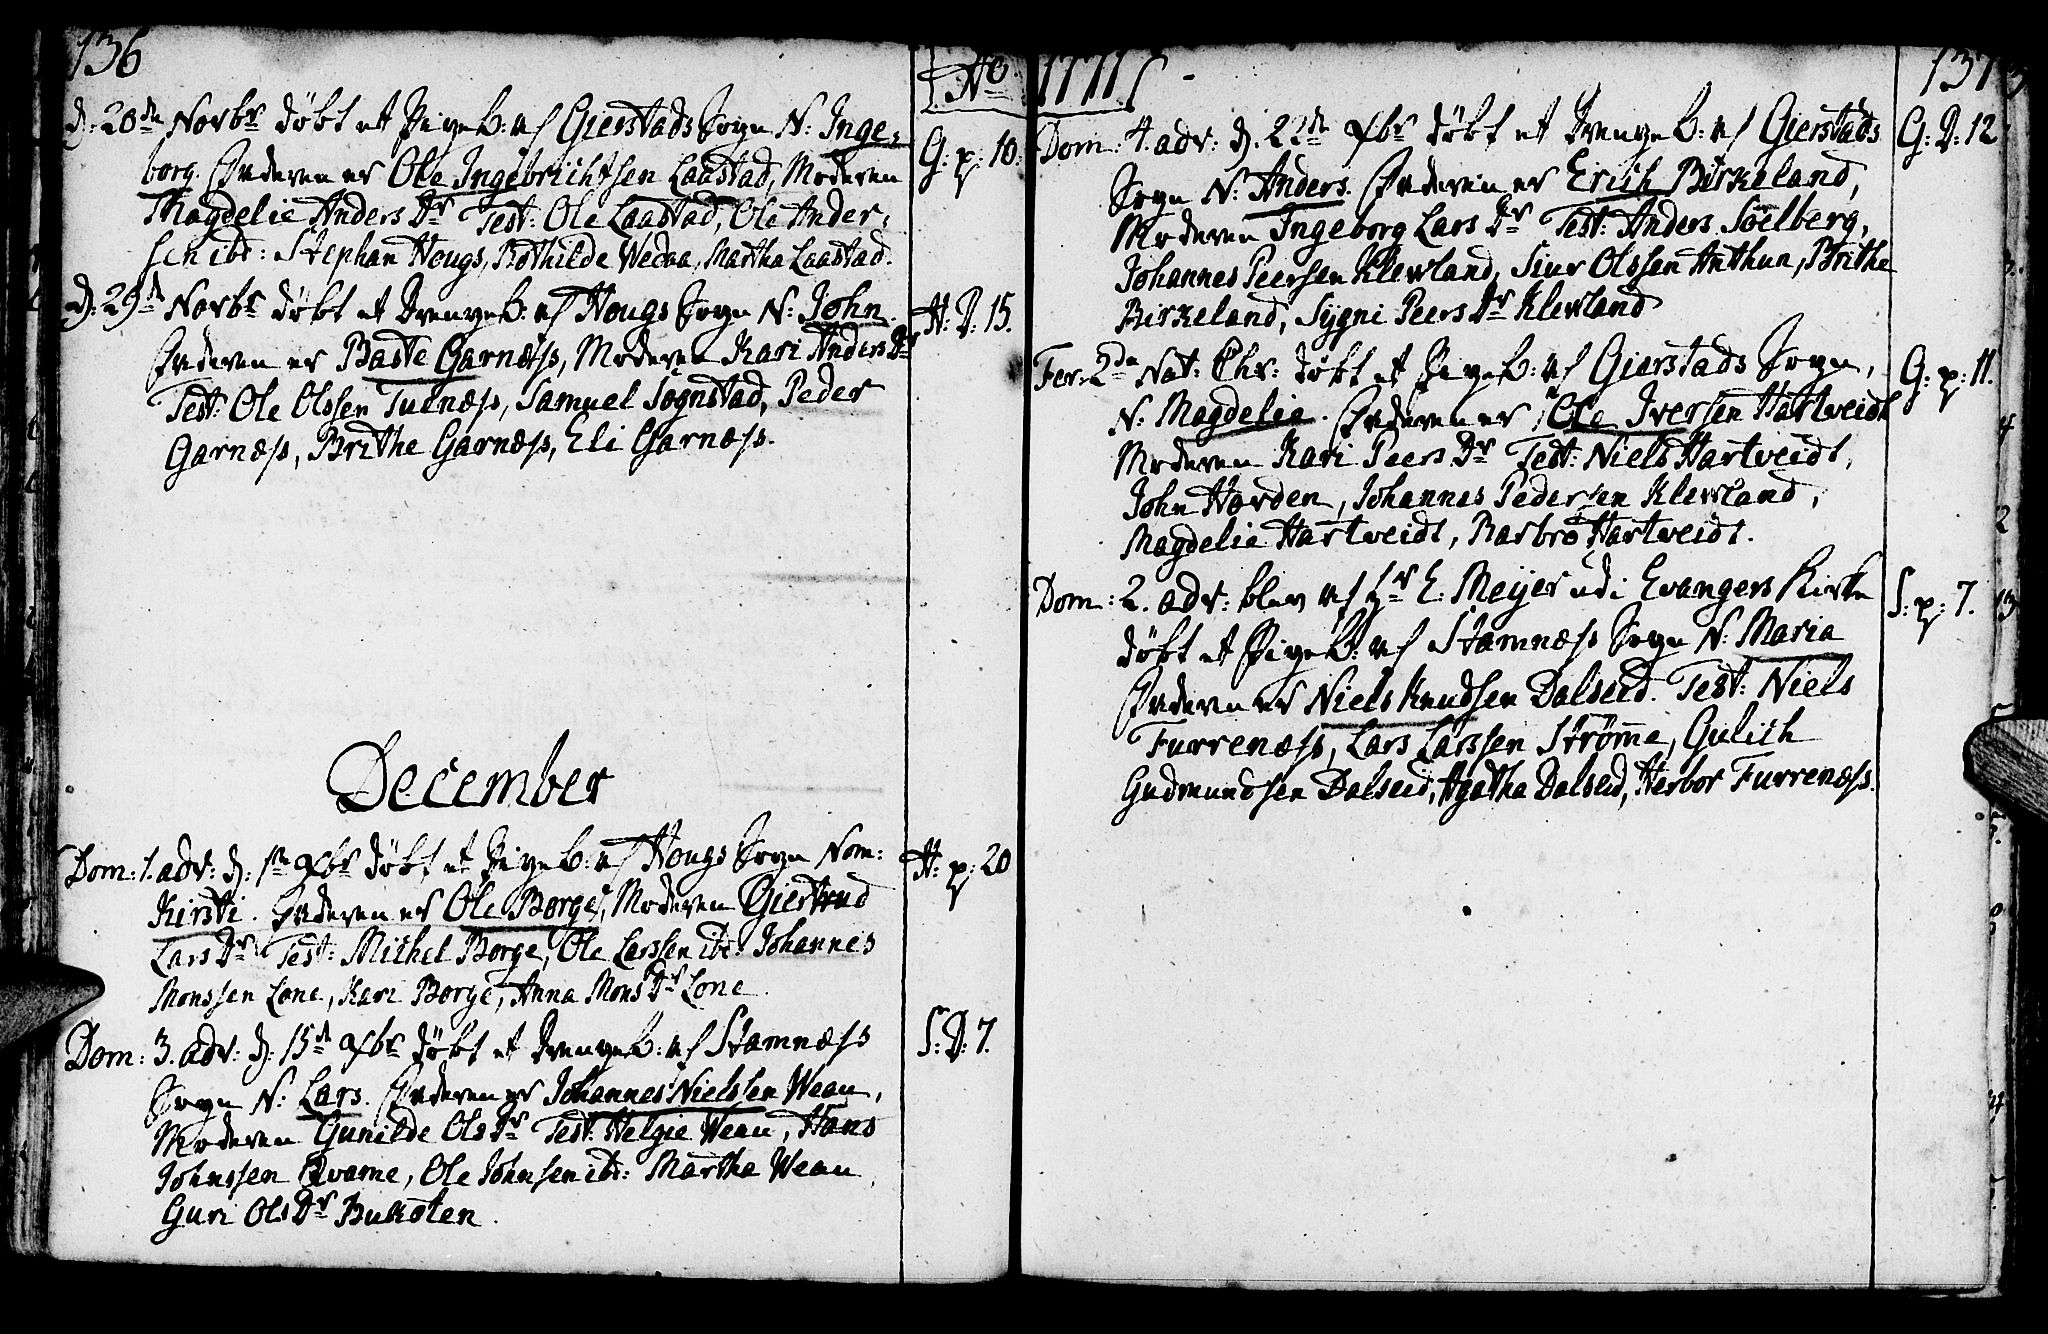 136
d: 20de Novbr døbt et Pigeb: af Gierstads Sogn N: Inge-
borg. Faderen er Ole Ingebrichtsen Laastad, Moderen
Magdelie Anders Dr Test: Ole Laastad, Ole Ander-
sen ibd: Stephan Hougs, Bothilde Wedaa, Martha Laastad.
G: p: 10.
d: 29de Novbr døbt et Drengeb: af Hougs Sogn N: John.
Faderen er Baste Garnæss, Moderen Kari Anders Dr
Test: Ole Olssen Tuenæss, Samuel Sognstad, Peder
Garnæss, Brithe Garnæss, Eli Garnæss.
H: D: 15.
December
Dom: 1. adv: d: 1te Xbr døbt et Pigeb: af Hougs Sogn Nom:
Kirsti. Faderen er Ole Borge, Moderen Giertrud
Lars Dr Test: Michel Borge, Ole Larssen ibd: Johannes
Monssen Lone, Kari Borge, Anna Mons Dr Lone.
H: p: 20
Dom: 3. adv: d: 15de Xbr døbt et Drengeb: af Stamnæss
Sogn N: Lars. Faderen er Johannes Nielssen Weau,
Moderen Gunilde Ols Dr Test: Helgie Weau, Hans
Johnssen Qvame, Ole Johnsen ibd: Martha Weau,
Guri Ols Dr Bukoten.
S: D: 7.
Ao 1771
137
Dom: 4. adv: d. 22de Xbr døbt et Drengeb: af Gierstads
Sogn N: Anders. Faderen er Erich Birkeland,
Moderen Ingeborg Lars Dr Test: Anders Soelberg,
Johannes Peersen Klewland, Siur Olssen Anthun, Brithe
Birkeland, Sygni Peers Dr Klewland
G: D: 12
Fer: 2da Nat: Chr: døbt et Pigeb: af Gierstads Sogn,
N: Magdelie. Faderen er Ole Iversen Hartveidt
Moderen Kari Peers Dr Test: Niels Hartveidt,
John Horden, Johannes Pedersen Klewland,
Magdelie Hartveidt, Barbro Hartveidt.
G: p: 11.
Dom: 2. adv: blev af Hr E. Meyer udi Evangers Kirke
døbt et Pigeb: af Stamnæss Sogn N: Maria
Faderen er Niels Knudsen Dalseid. Test: Niels
Furrenæss, Lars Larssen Strømme, Gulich
Gudmundsen Dalseid, Agatha Dalseid, Herbor Furrenæss.
S: p: 7.